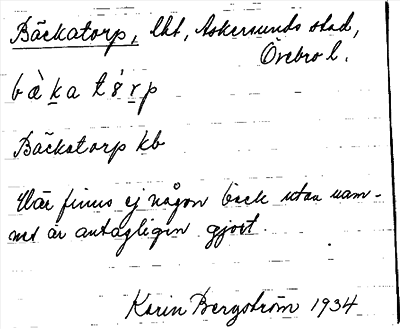 Bäckatorp, lht, Askersunds stad,
Örebro l.
bàka tórp
Bäckatorp kb
Här finns ej någon bäck utan nam-
net är antagligin gjort.
Karin Bergström 1934